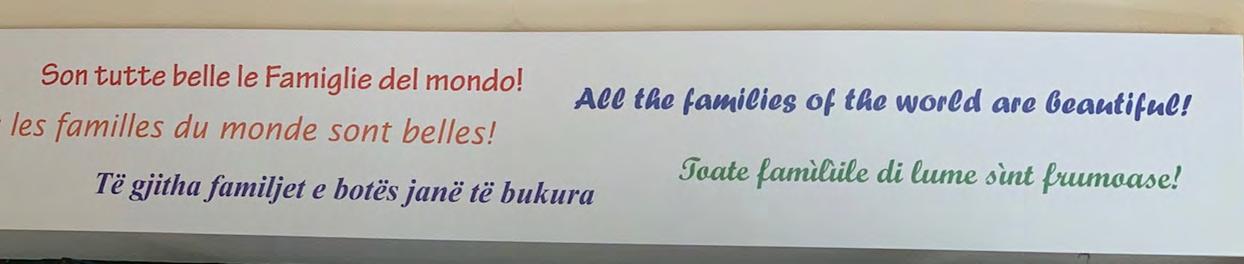 Son tutte belle le Famiglie del mondo!
les familles du monde sont belles!
Të gjitha familjet e botës janë të bukura
All the families of the world are beautiful!
Toate famìlìile di lume sìnt frumoase!